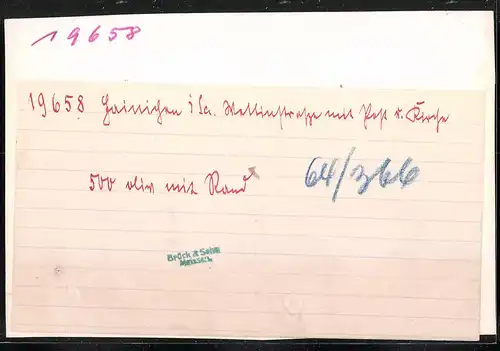 19658
19658 Hainichen i Sa. Wettinstraße mit Post u. Kirche
500 oliv mit Rand
64/366
Brück & Sohn
Meissen